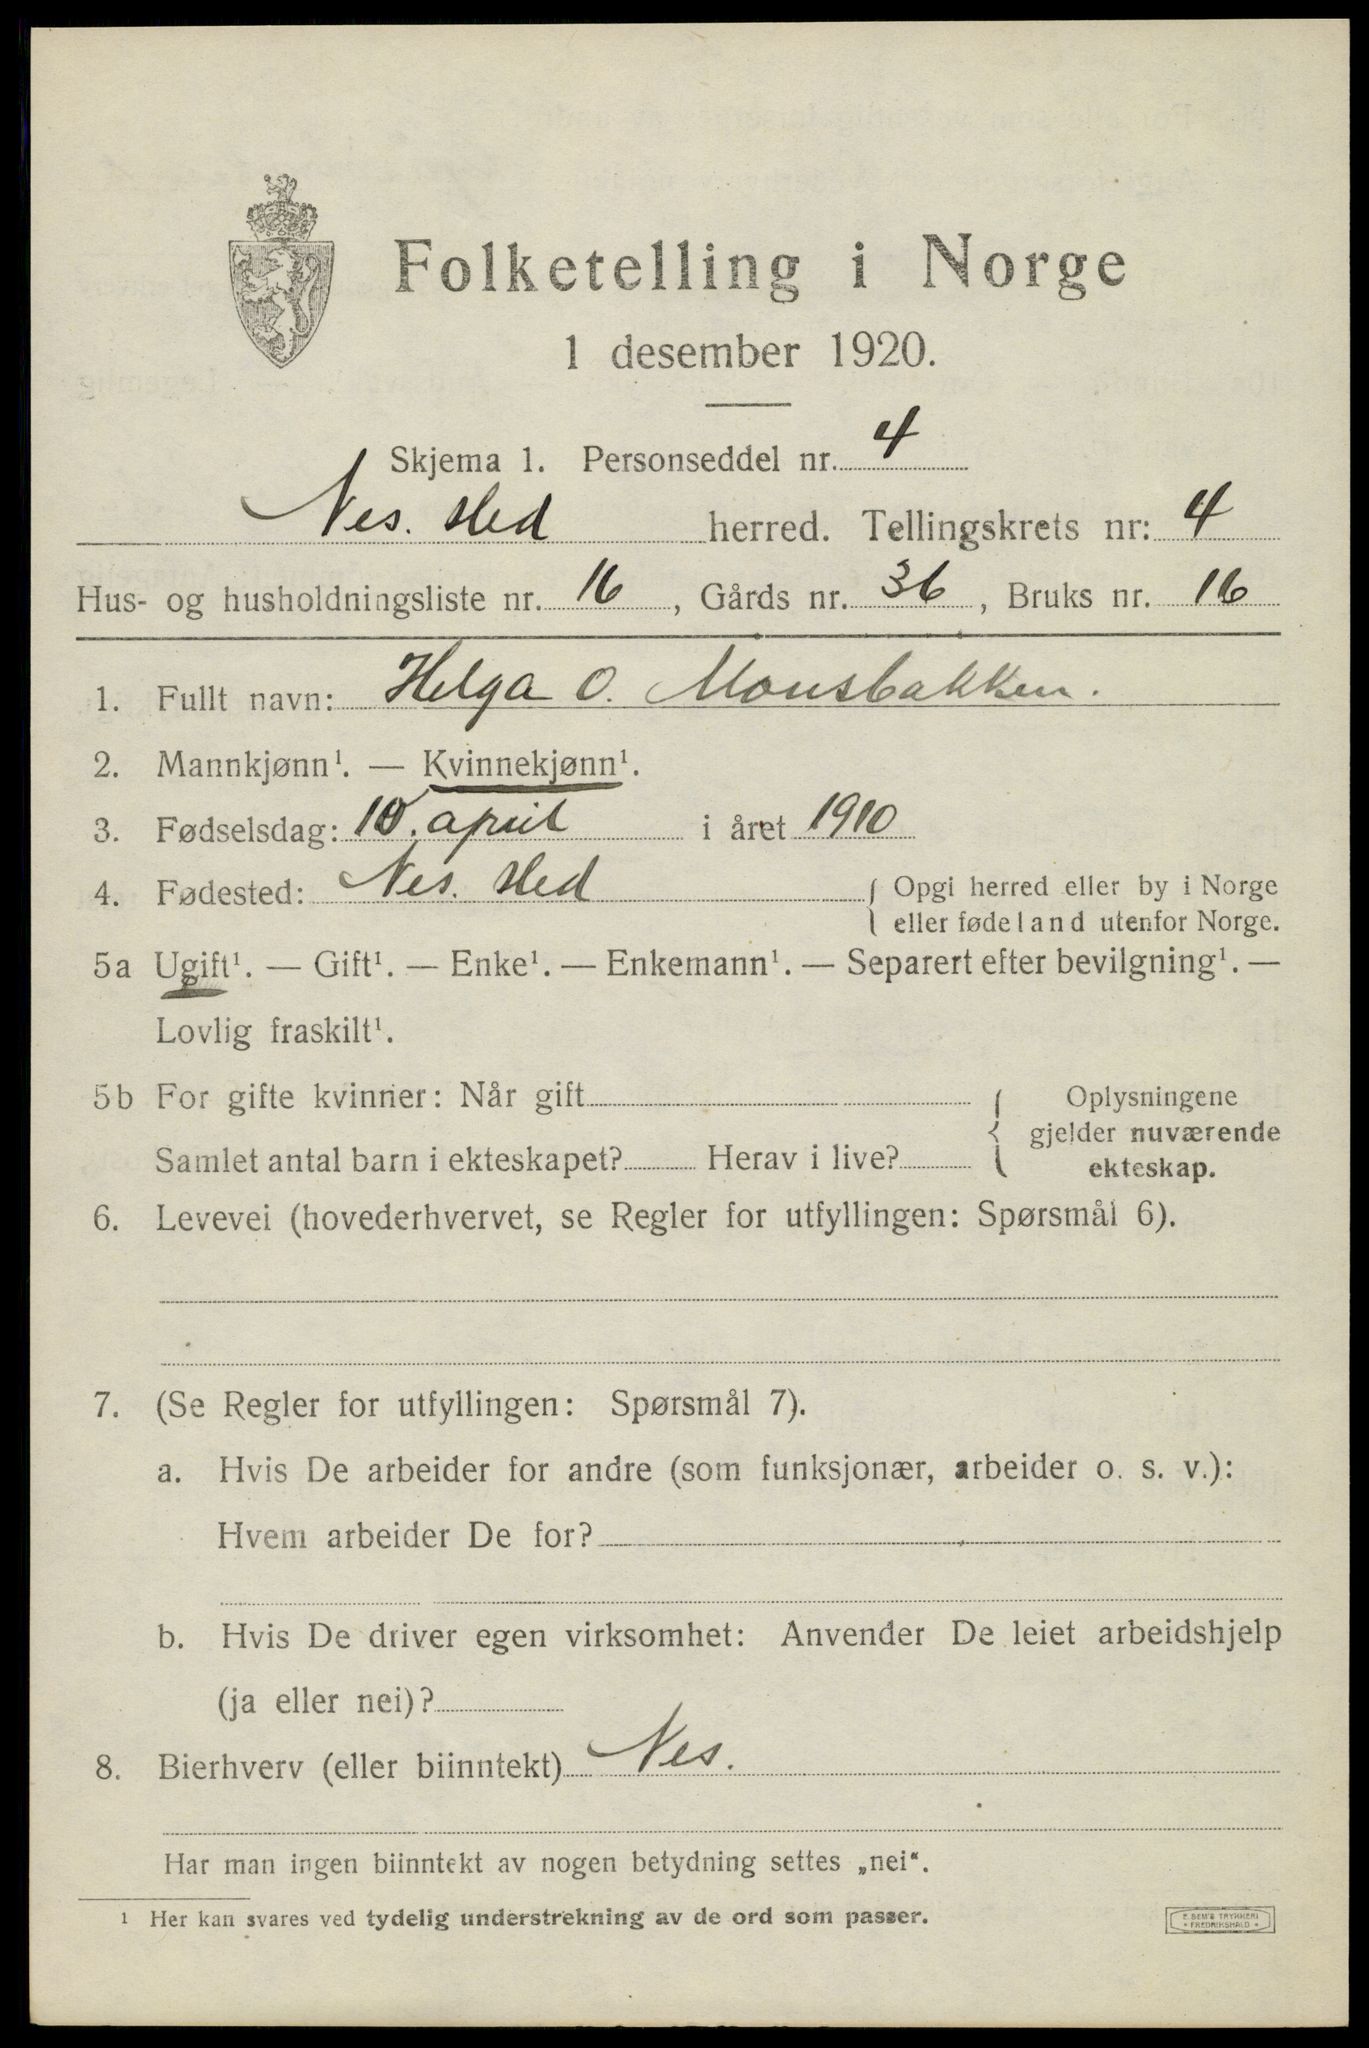 Folketelling i Norge
1 desember 1920.
Skjema 1. Personseddel nr. 4
Nes. Hed herred. Tellingskrets nr: 4
Hus- og husholdningsliste nr. 16, Gårds nr. 36, Bruks nr. 16
1. Fullt navn: Helga O. Monsbakken.
2. Mannkjønn¹. — Kvinnekjønn¹.
3. Fødselsdag: 10. april i året 1910
4. Fødested: Nes. Hed { Opgi herred eller by i Norge
eller fødeland utenfor Norge.
5a Ugift¹. — Gift¹. — Enke¹. — Enkemann¹. — Separert efter bevilgning¹. —
Lovlig fraskilt¹.
5b For gifte kvinner: Når gift { Oplysningene
gjelder nuværende
Samlet antal barn i ekteskapet? Herav i live? ekteskap.
6. Levevei (hovederhvervet, se Regler for utfyllingen: Spørsmål 6).
7. (Se Regler for utfyllingen: Spørsmål 7).
a. Hvis De arbeider for andre (som funksjonær, arbeider o. s. v.):
Hvem arbeider De for?
b. Hvis De driver egen virksomhet: Anvender De leiet arbeidshjelp
(ja eller nei)?
8. Bierhverv (eller biinntekt) Nes.
Har man ingen biinntekt av nogen betydning settes „nei“.
¹ Her kan svares ved tydelig understrekning av de ord som passer.
E. SEM'S TRYKKERI
• FREDRIKSHALD •